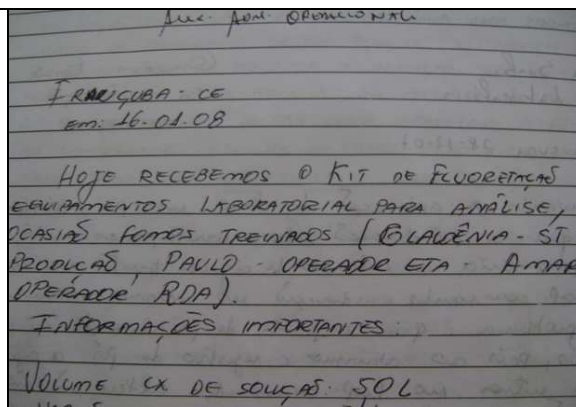 Aux. Adm. OPERACIONAL
IRAUÇUBA - CE
Em: 16.01.08
HOJE RECEBEMOS O KIT DE FLUORETAÇÃO
EQUIPAMENTOS LABORATORIAL PARA ANÁLISE,
OCASIÃO FOMOS TREINADOS (GLAUDÊNIA - ST
PRODUÇÃO, PAULO - OPERADOR ETA - AMAR
OPERADOR RDA).
INFORMAÇÕES IMPORTANTES:
VOLUME CX DE SOLUÇÃO: 50L